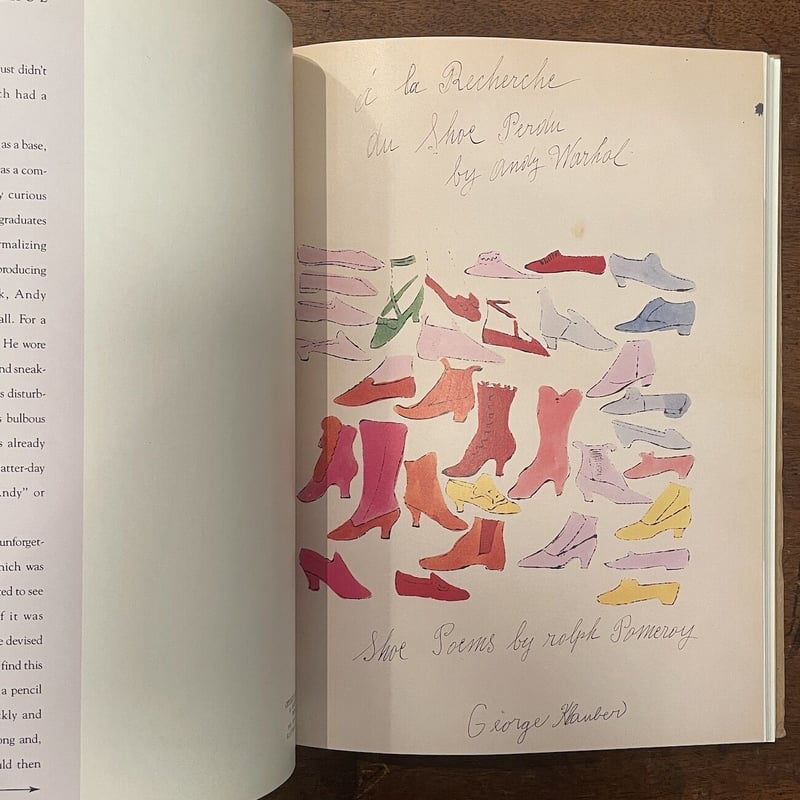 ust didn't
ch had a
as a base,
as a com-
y curious
graduates
rmalizing
producing
k, Andy
all. For a
He wore
nd sneak-
s disturb-
s bulbous
s already
atter-day
Andy" or
unforget-
hich was
red to see
f it was
e devised
find this
a pencil
ckly and
ong and,
uld then
á la Recherche
du Shoe Perdu
by Andy Warhol
Shoe Poems by ralph Pomeroy
George Klauber